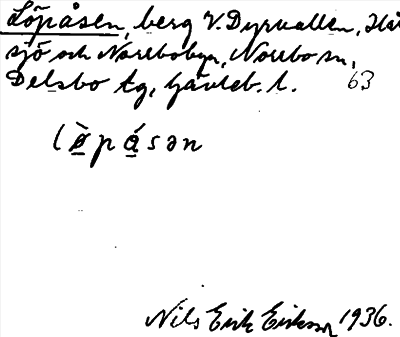 Löpåsen, berg V. Dyrvallen, Hå
sjö och Norrbobyn, Norrbo sn,
Delsbo tg, Gävleb. l. 63
lø̀pásən
Nils Erik Eriksson 1936.